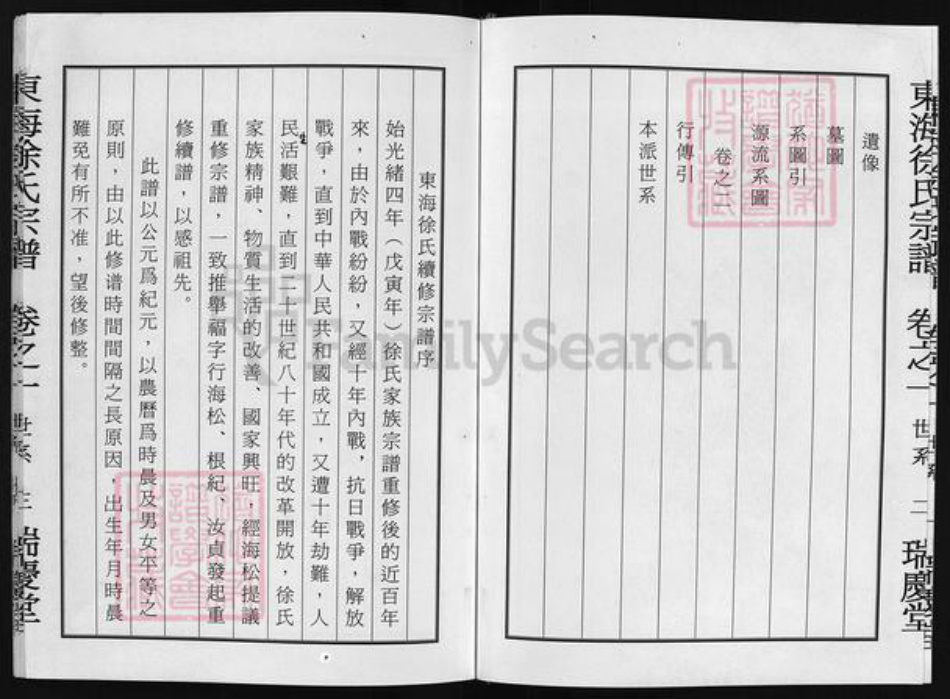 東海徐氏宗譜 卷之一 世系 二 瑞慶堂
遺像
墓圖
系圖引
源流系圖
卷之二
行傳引
本派世系
東海徐氏續修宗譜序
始光緒四年（戊寅年）徐氏家族宗譜重修後的近百年
來，由於內戰紛紛，又經十年內戰，抗日戰爭，解放
戰爭，直到中華人民共和國成立，又遭十年劫難，人
民生活艱難，直到二十世紀八十年代的改革開放，徐氏
家族精神、物質生活的改善、國家興旺，經海松提議
重修宗譜，一致推舉福字行海松、根紀、汝貞發起重
修續譜，以感祖先。
此譜以公元爲紀元，以農曆爲時晨及男女平等之
原則，由以此修谱時間間隔之長原因，出生年月時晨
難免有所不准，望後修整。
東海徐氏宗譜 卷之一 世系 三 瑞慶堂
FamilySearch